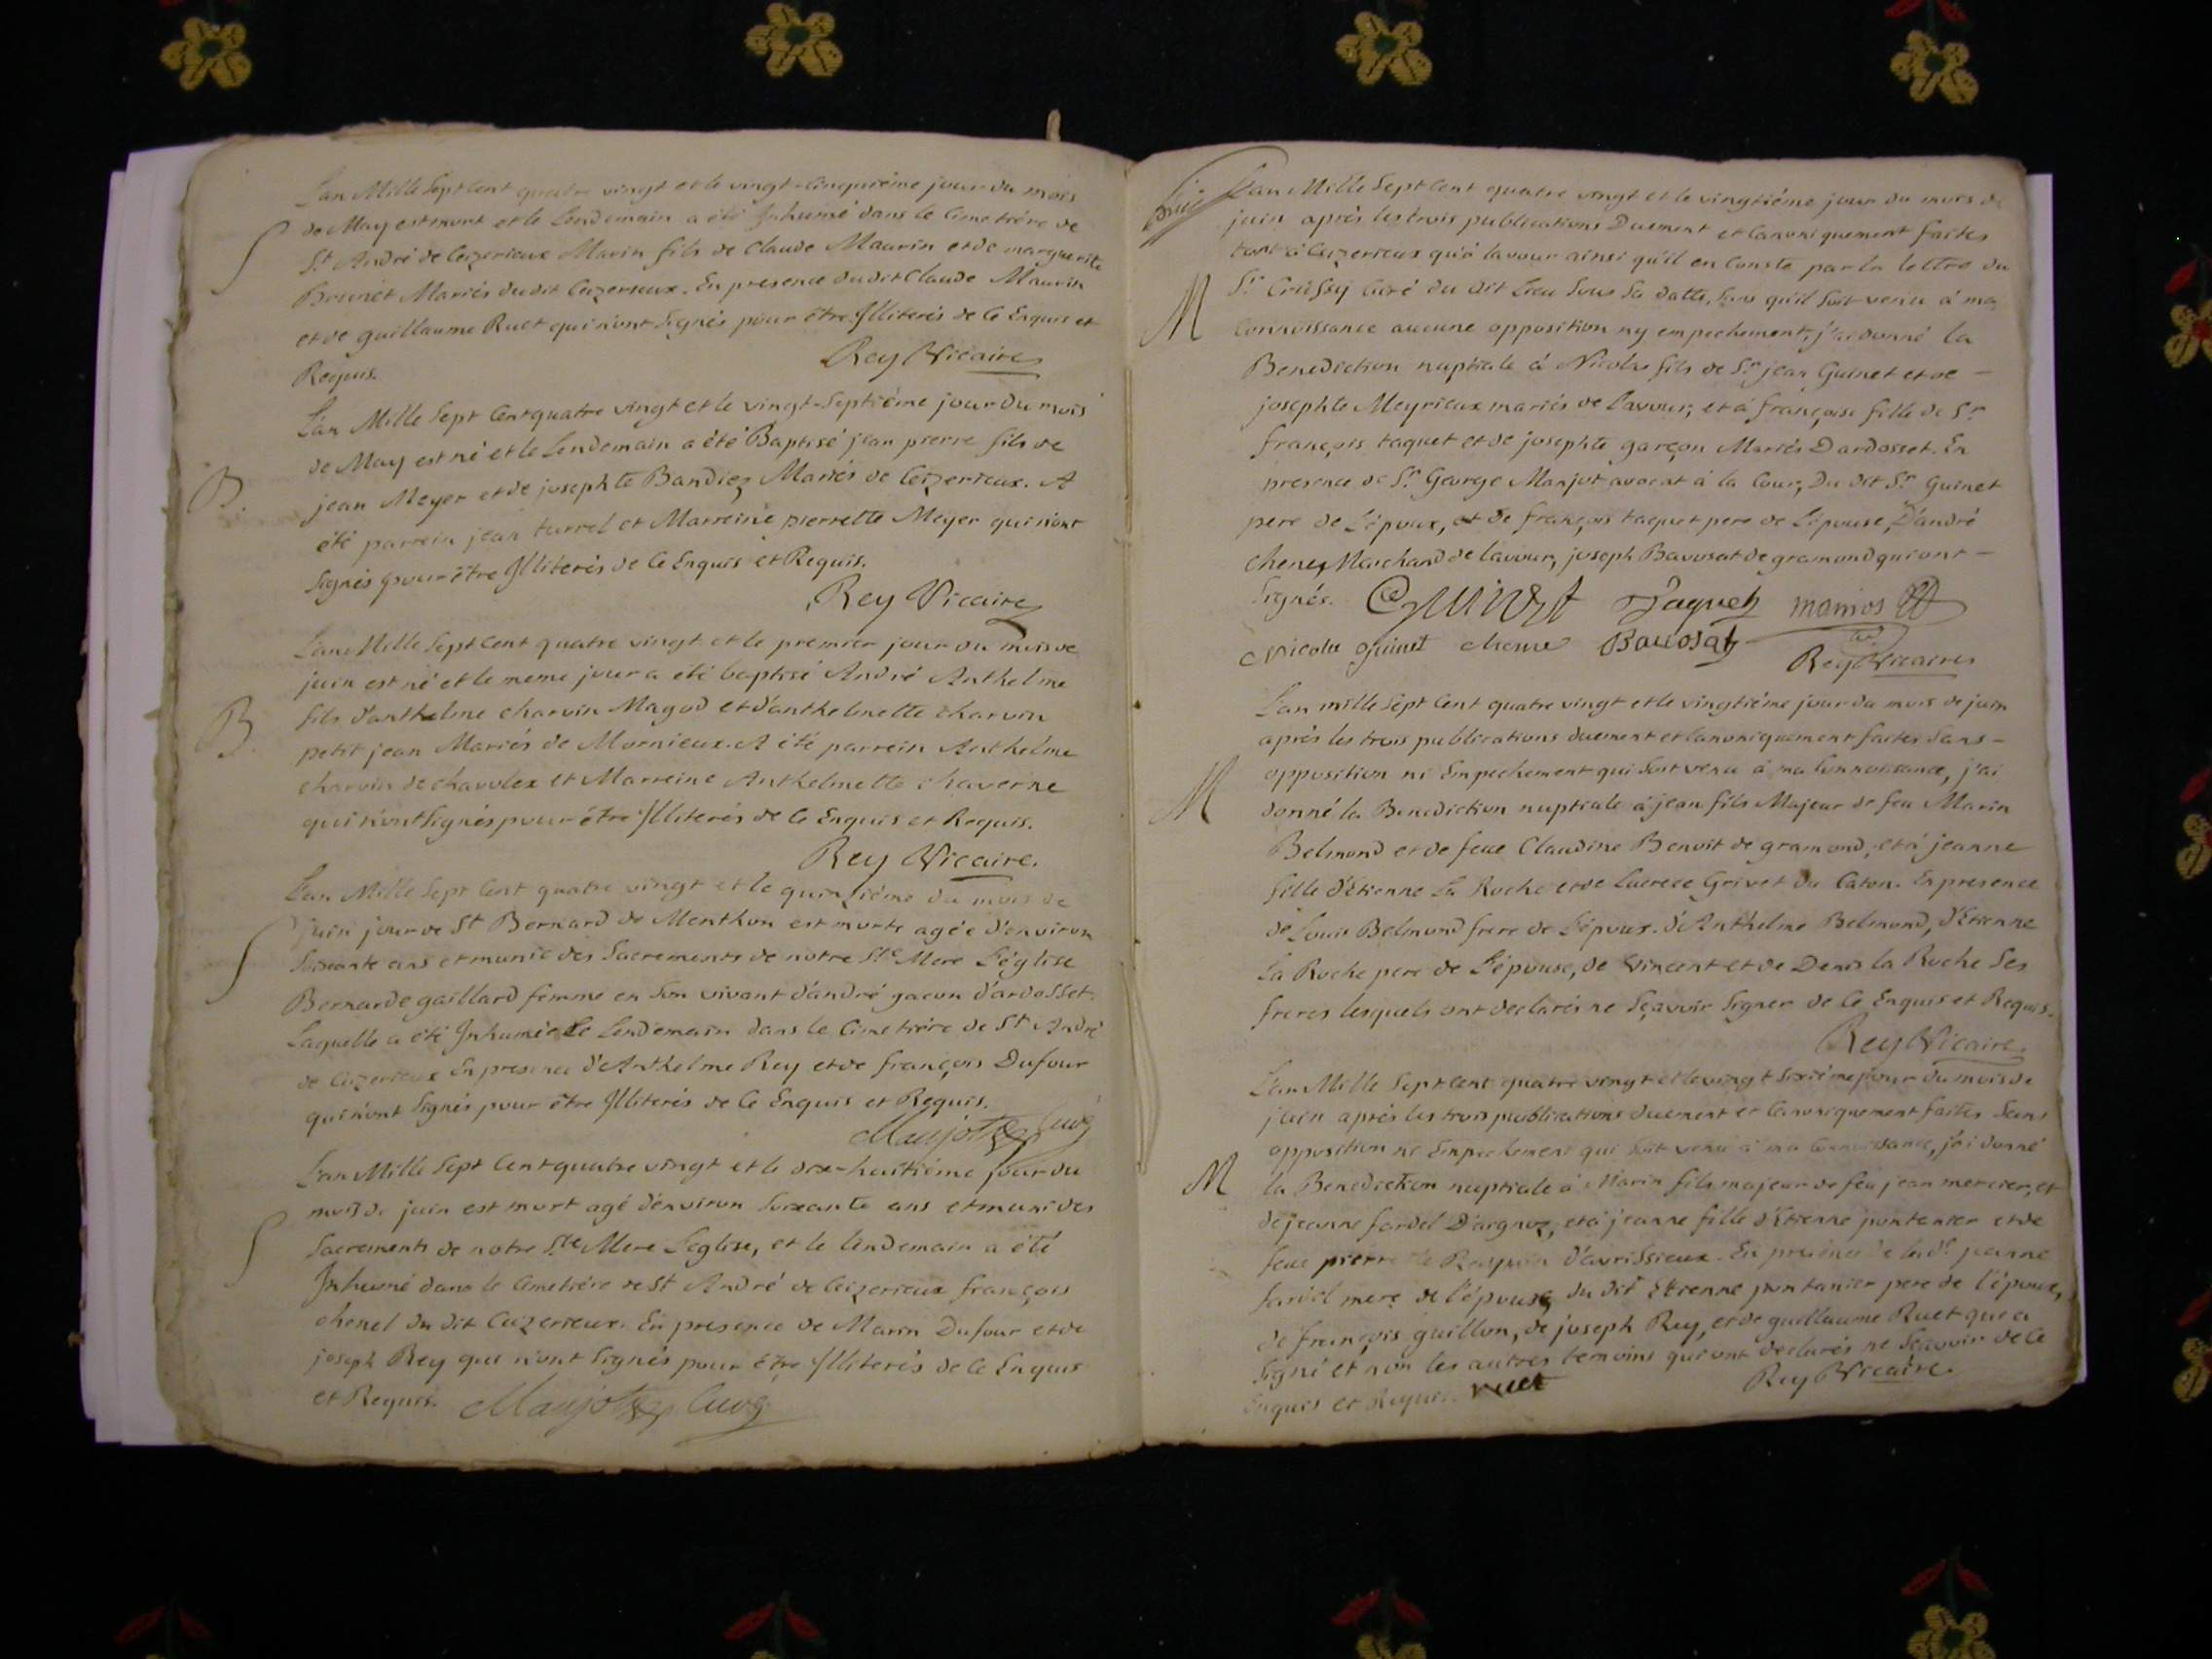 L'an Mille Sept Cent quatre vingt et le vingt-cinquiéme jour du mois
de May est mort et le Lendemain a été Jnhumé dans le Cimetiére de
S
St André de Ceizerieux Marin fils de Claude Maurin et de marguerite
Brunet Mariés dudit Ceizerieux. En presence dudit Claude Maurin
et de guillaume Ruet qui n'ont Signés pour être Jlliterés de Ce Enquis et
Requis.
Rey Vicaire
L'an Mille Sept Cent quatre vingt et le vingt-Septiéme jour du mois
de May est né et le Lendemain a été Baptisé jean pierre fils de
B.
jean Meyer et de josephte Bandiez Mariés de Ceizerieux. A
été parrein jean turrel et Marreine pierrette Meyer qui n'ont
Signés pour être Jlliterés de Ce Enquis et Requis.
Rey Vicaire
L'an Mille Sept Cent quatre vingt et le premier jour du mois de
juin est né et le meme jour a été baptisé André Anthelme
B.
fils d'anthelme charvin Magod et d'anthelmette charvin
petit jean Mariés de Mornieux. A été parrein Anthelme
charvin de chavolex et Marreine Anthelmette chaverne
qui n'ont Signés pour être Jlliterés de Ce Enquis et Requis.
Rey Vicaire.
L'an Mille Sept Cent quatre vingt et le quinziéme du mois de
S
juin jour de St Bernard de Menthon est morte agée d'environ
Soixante ans et munie des Sacrements de notre Ste Mere L'église
Bernarde gaillard femme en Son vivant d'andré gacon d'ardosset.
Laquelle a été Jnhumée Le Lendemain dans le Cimetiére de St André
de Ceizerieux En presence d'Anthelme Rey et de françois Dufour
qui n'ont Signés pour être Jlliterés de Ce Enquis et Requis.
Manjot Curé
L'an Mille Sept Cent quatre vingt et le dix-huitiéme jour du
mois de juin est mort agé d'environ Soixante ans et muni des
S
Sacrements de notre Ste Mere L'eglise, et le lendemain a été
Jnhumé dans le Cimetiére de St André de Ceizerieux françois
chenel du dit Ceizerieux. En presence de Marin Dufour et de
joseph Rey qui n'ont Signés pour être Jlliterés de Ce Enquis
et Requis. Manjot Curé
L'an Mille Sept Cent quatre vingt et le vingtiéme jour du mois de
juin aprés les trois publications Duement et Canoniquement faites
tant à Ceizerieux qu'à lavour ainsi qu'il en Conste par la lettre du
M
Sr Crussy Curé du dit Lieu Sous Sa datte, Sans qu'il Soit venu à ma
Connoissance aucune opposition ny empechement, j'ai donné la
Benediction nuptiale à Nicolas fils de Sr jean Guinet et de -
josephte Meyrieux mariés de Lavour, et à françoise fille de Sr
françois taquet et de josephte garçon Mariés Dardosset. En
presence de Sr George Manjot avocat à la Cour, Du dit Sr Guinet
pere de L'époux, et de françois taquet pere de L'épouse, D'andré
chene, Marchand de lavour, joseph Bavosat de gramond qui ont -
Signés. Guinet Taquet manios
Nicolas guinet chene Bauosat
Rey Vicaire
L'an mille Sept Cent quatre vingt et le vingtiéme jour du mois de juin
aprés les trois publications duement et Canoniquement faites Sans -
opposition ni Empechement qui Soit venu à ma Connoissance, j'ai
M
donné la Benediction nuptiale à jean fils Majeur de feu Marin
Belmond et de feue Claudine Benoit de gramond, et à jeanne
fille d'Etienne La Roche et de Lucrece Grivet du Caton. En presence
de Louis Belmond frere de L'époux. d'Anthelme Belmond, d'Etienne
La Roche pere de L'épouse, de Vincent et de Denis la Roche Ses
freres lesquels ont declarés ne Sçavoir Signer de Ce Enquis et Requis.
Rey Vicaire.
L'an Mille Sept Cent quatre vingt et le vingt Sixiéme jour du mois de
juin aprés les trois publications duement et Canoniquement faites Sans
opposition ni Empechement qui Soit venu à ma Connoissance, j'ai donné
M
la Benediction nuptiale à Marin fils majeur de feu jean mercier, et
de jeanne fardel D'argnoz, et à jeanne fille d'Etienne pontanier et de
feue pierrette d'avrissieux. En presence de lade jeanne
fardel mere de l'épouse, du dit Etienne pontanier pere de l'épouse,
de françois guillon, de joseph Rey, et de guillaume Ruet qui a
Signé et non les autres temoins qui ont declarés ne Sçavoir de Ce
Enquis et Requis. ruet
Rey Vicaire.